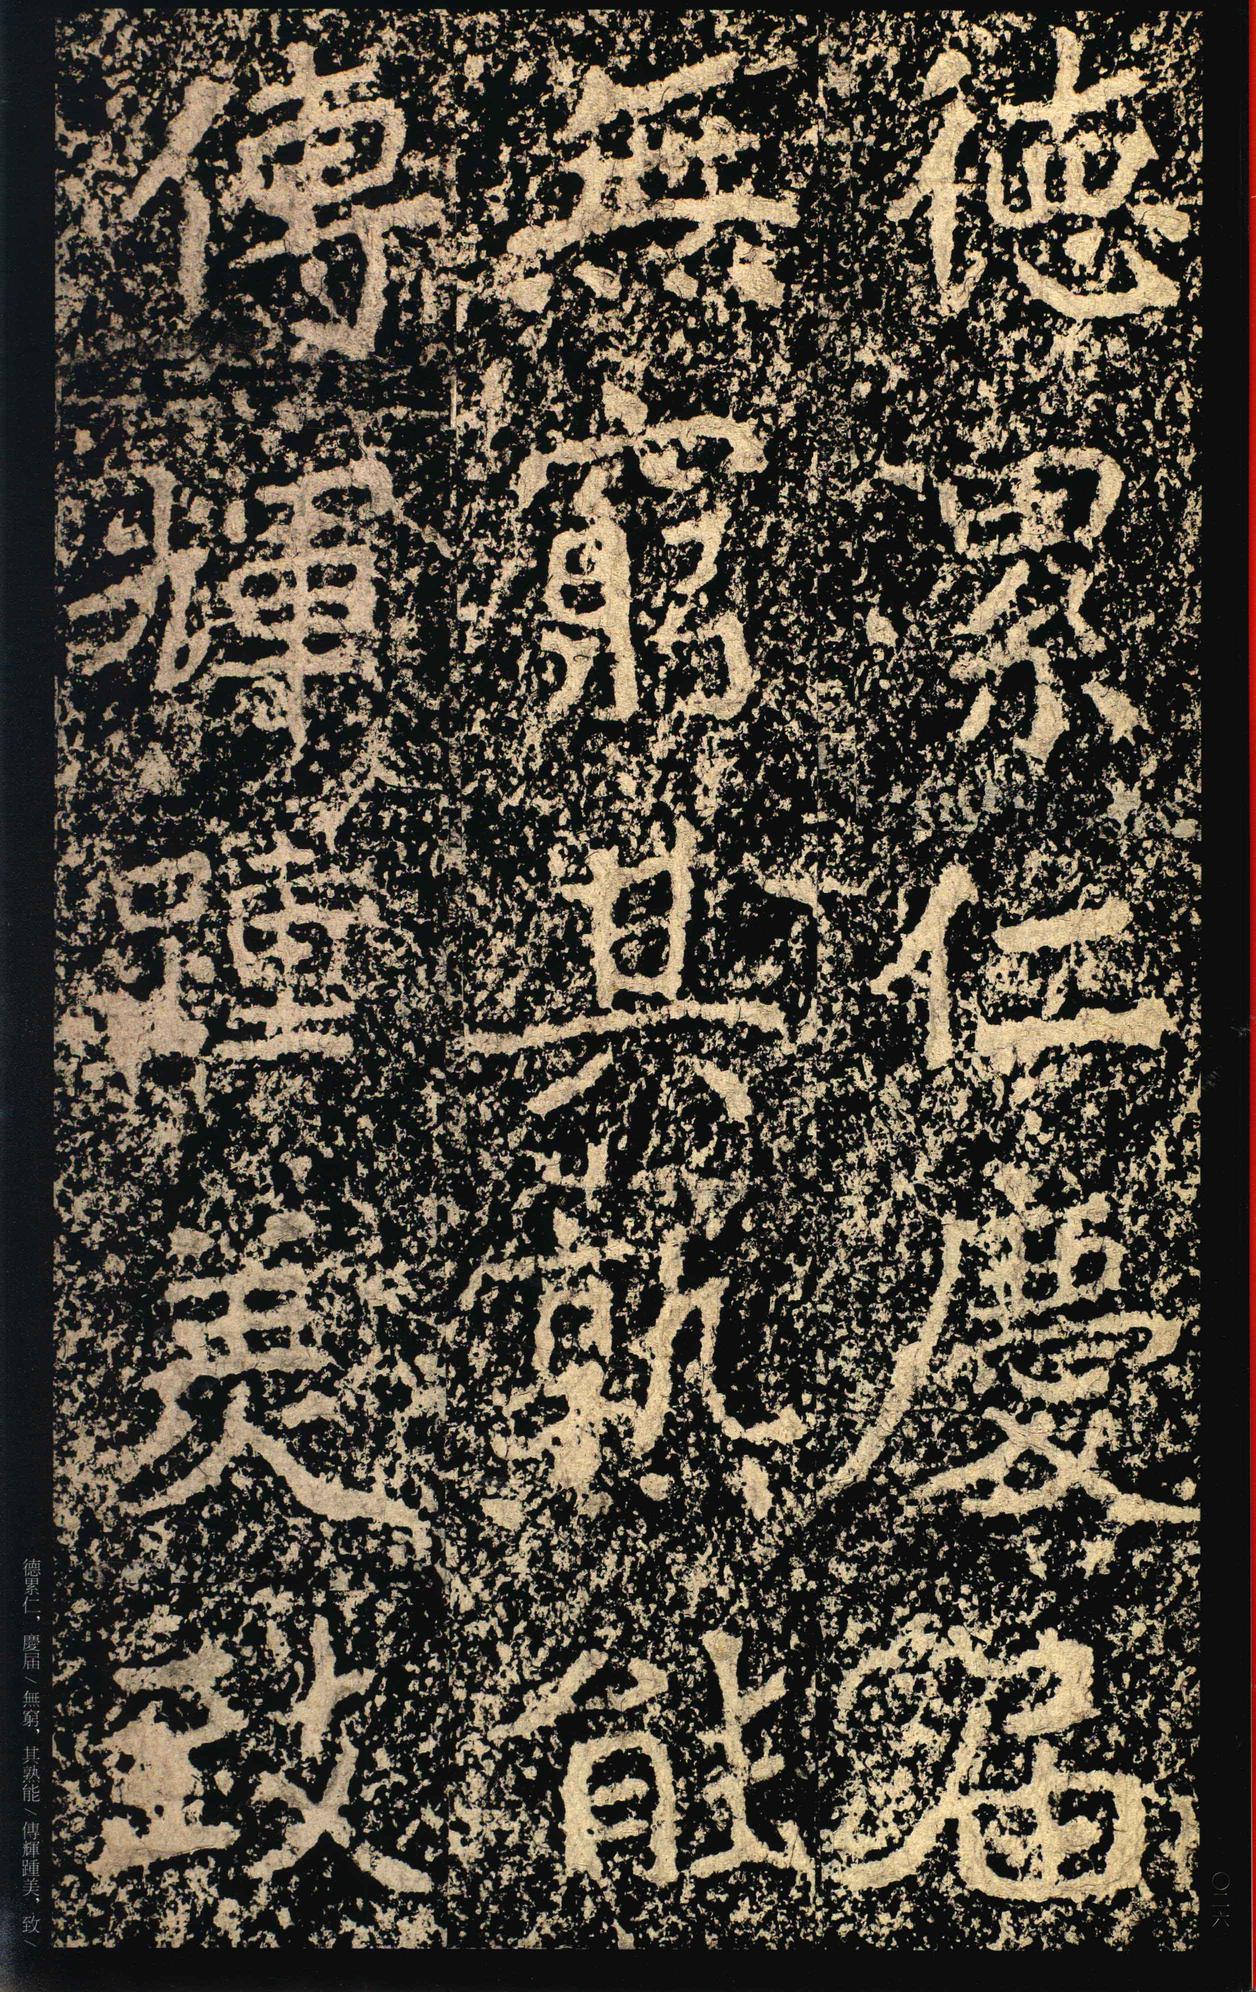 德累仁慶届
無窮其熟能
傳輝踵美致
德累仁、慶届/無窮,其熟能/傳輝踵美,致/
〇二六